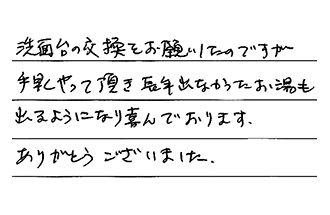 洗面台の交換をお願いしたのですが
手早くやって頂き長年出なかったお湯も
出るようになり喜んでおります.
ありがとうございました.